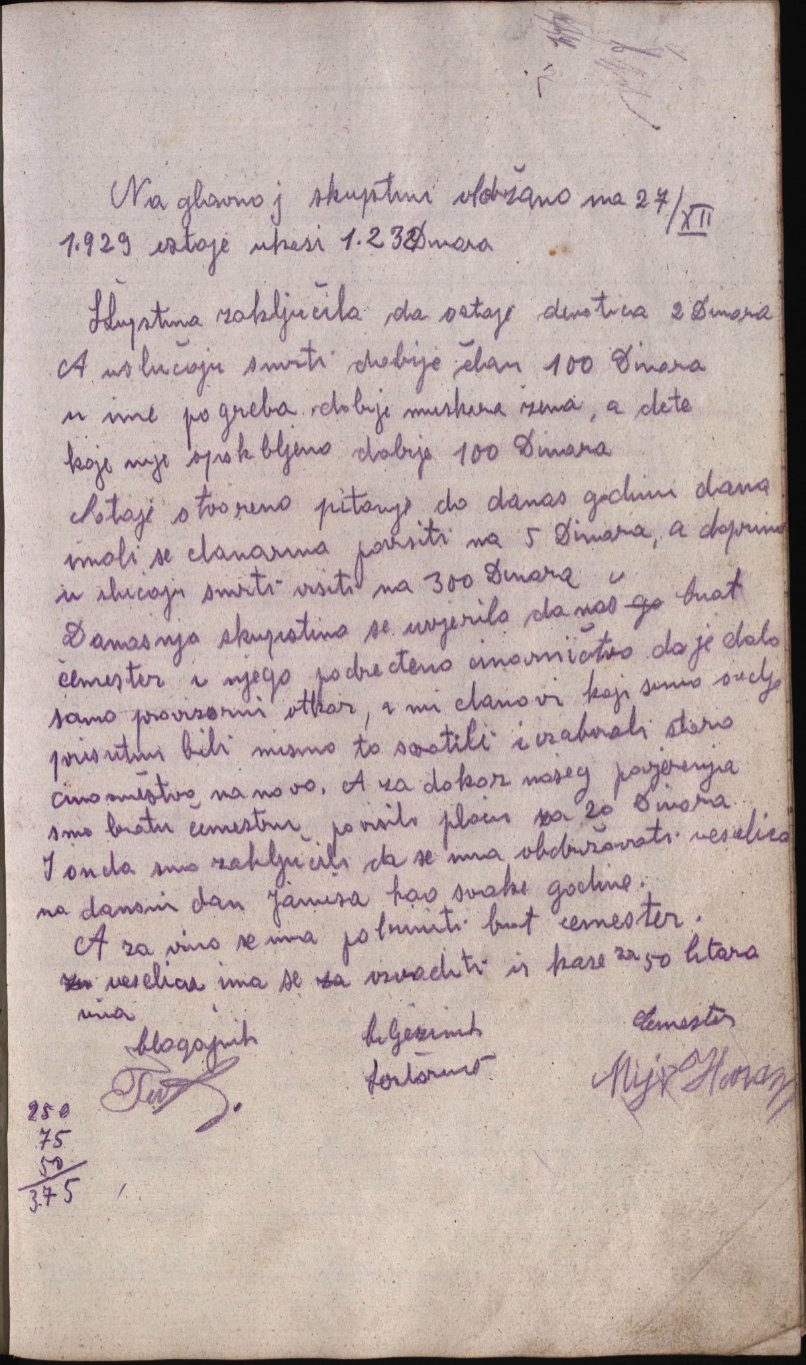 Na glavnoj skupštini obdržano na 27/XII
1.929 ostaje u kasi 1.232 Dinara
Skupstina zaključila da ostaje 2 Dinara
A uslučaju smrti dobije član 100 Dinara
u ime pogreba dobije muskara žena, a dete
koje nije dobije 100 Dinara
Ostaje otvoreno pitanje do danas godinu dana
imali se clanarina povisiti na 5 Dinara, a doprinos
u slučaju smrti visiti na 300 Dinara
Danasnja skupstina se uvjerila da nas brat
čemester i njego podređeno da je dalo
samo provizorni otkaz, a mi clanovi koji smo ovdje
prisutni bili nismo to svatili i izabrali staro
na novo. A za dokaz naseg povjerenja
smo bratu čemestru povisili placu za 20 Dinara
I onda smo zaključili da se ima obdržavati veselica
na dansni dan Janusa kao svake godine.
A za vino se ima pobriniti brat cemester.
za veselicu ima se izvaditi iz kase za 50 litara
vina
blagajnik biljeznik Cemester
250
75
50
3.75